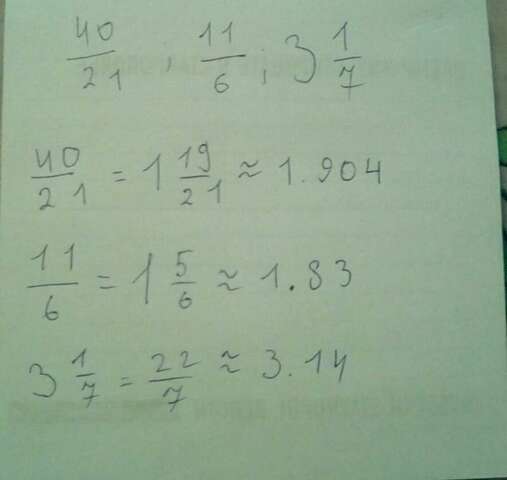 40/21 , 11/6 ; 3 1/7
40/21 = 1 19/21 ≈ 1.904
11/6 = 1 5/6 ≈ 1.83
3 1/7 = 22/7 ≈ 3.14